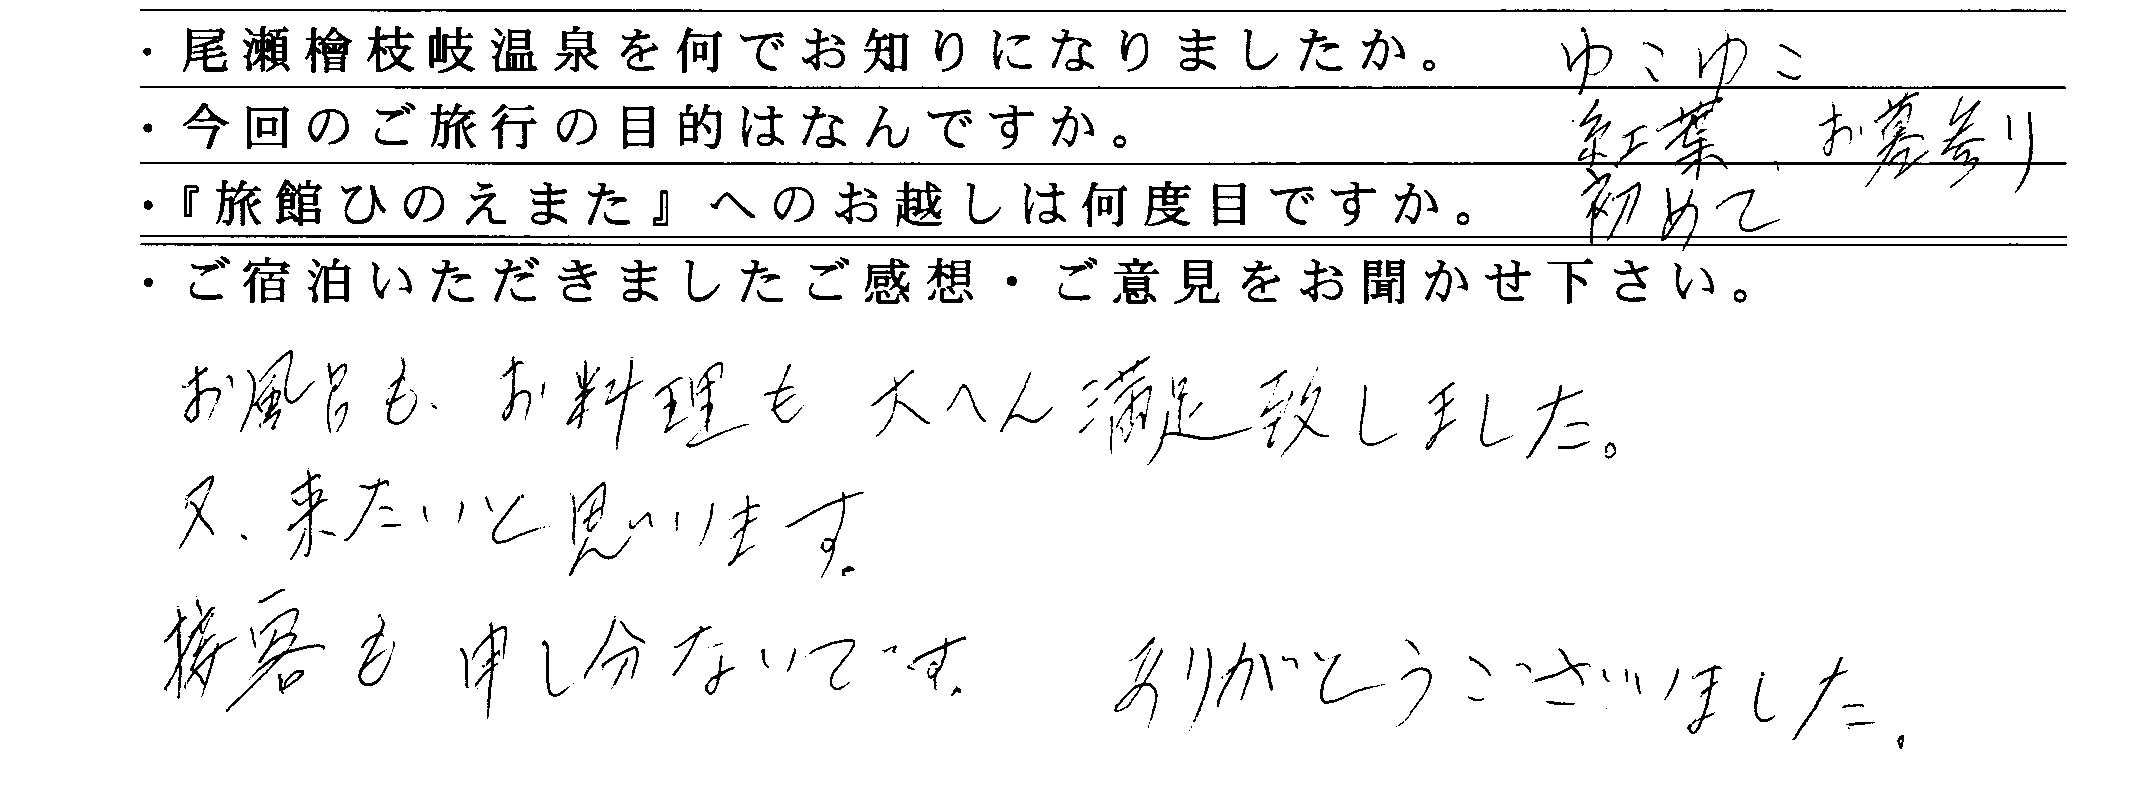 ・尾瀬檜枝岐温泉を何でお知りになりましたか。 ゆこゆこ
・今回のご旅行の目的はなんですか。 紅葉、お墓参り
・『旅館ひのえまた』へのお越しは何度目ですか。 初めて
・ご宿泊いただきましたご感想・ご意見をお聞かせ下さい。
お風呂も、お料理も大へん満足致しました。
又、来たいと思います。
接客も申し分ないです。 ありがとうございました。